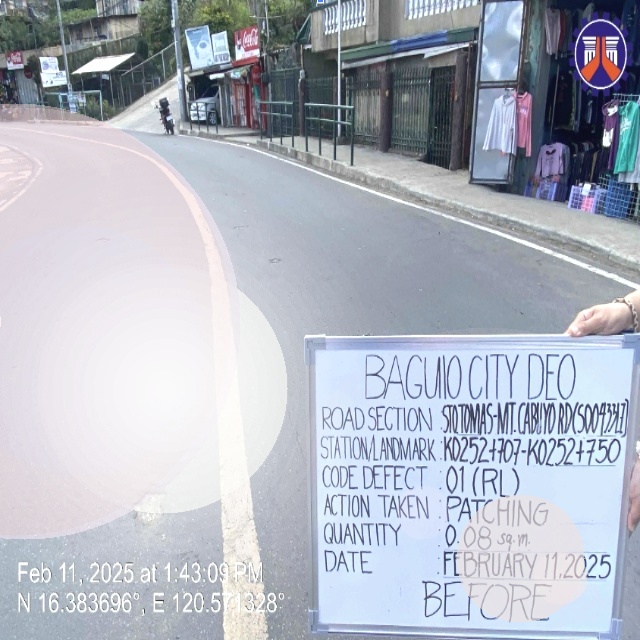 Coca-Cola
BAGUIO CITY DEO
ROAD SECTION : STO.TOMAS-MT.CABUYO RD(S00433LZ)
STATION/LANDMARK : K0252+707-K0252+750
CODE DEFECT : 01 (RL)
ACTION TAKEN : PATCHING
QUANTITY : 0.08 sq.m.
DATE : FEBRUARY 11, 2025
BEFORE
Feb 11, 2025 at 1:43:09 PM
N 16.383696°, E 120.571328°